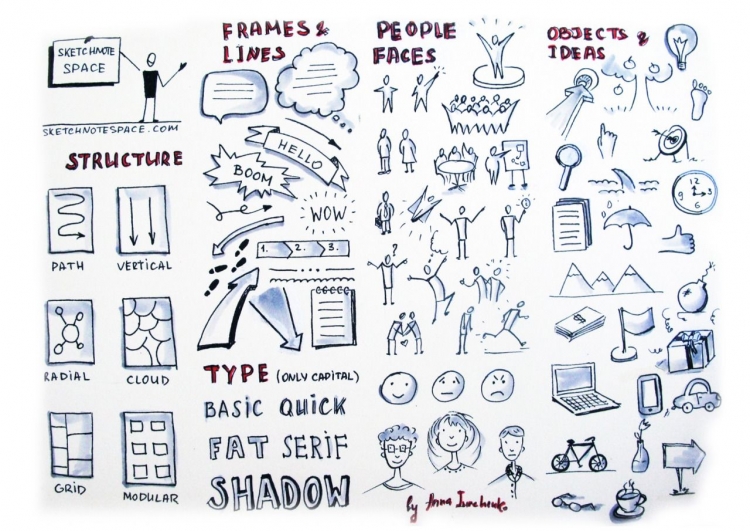 SKETCHNOTE
SPACE
SKETCHNOTESPACE.COM
STRUCTURE
PATH
VERTICAL
RADIAL
CLOUD
GRID
MODULAR
FRAMES &
LINES
HELLO
BOOM
WOW
1. 2. 3.
TYPE (ONLY CAPITAL)
BASIC QUICK
FAT SERIF
SHADOW
PEOPLE
FACES
?
by Anna
OBJECTS &
IDEAS
12
9 3
6